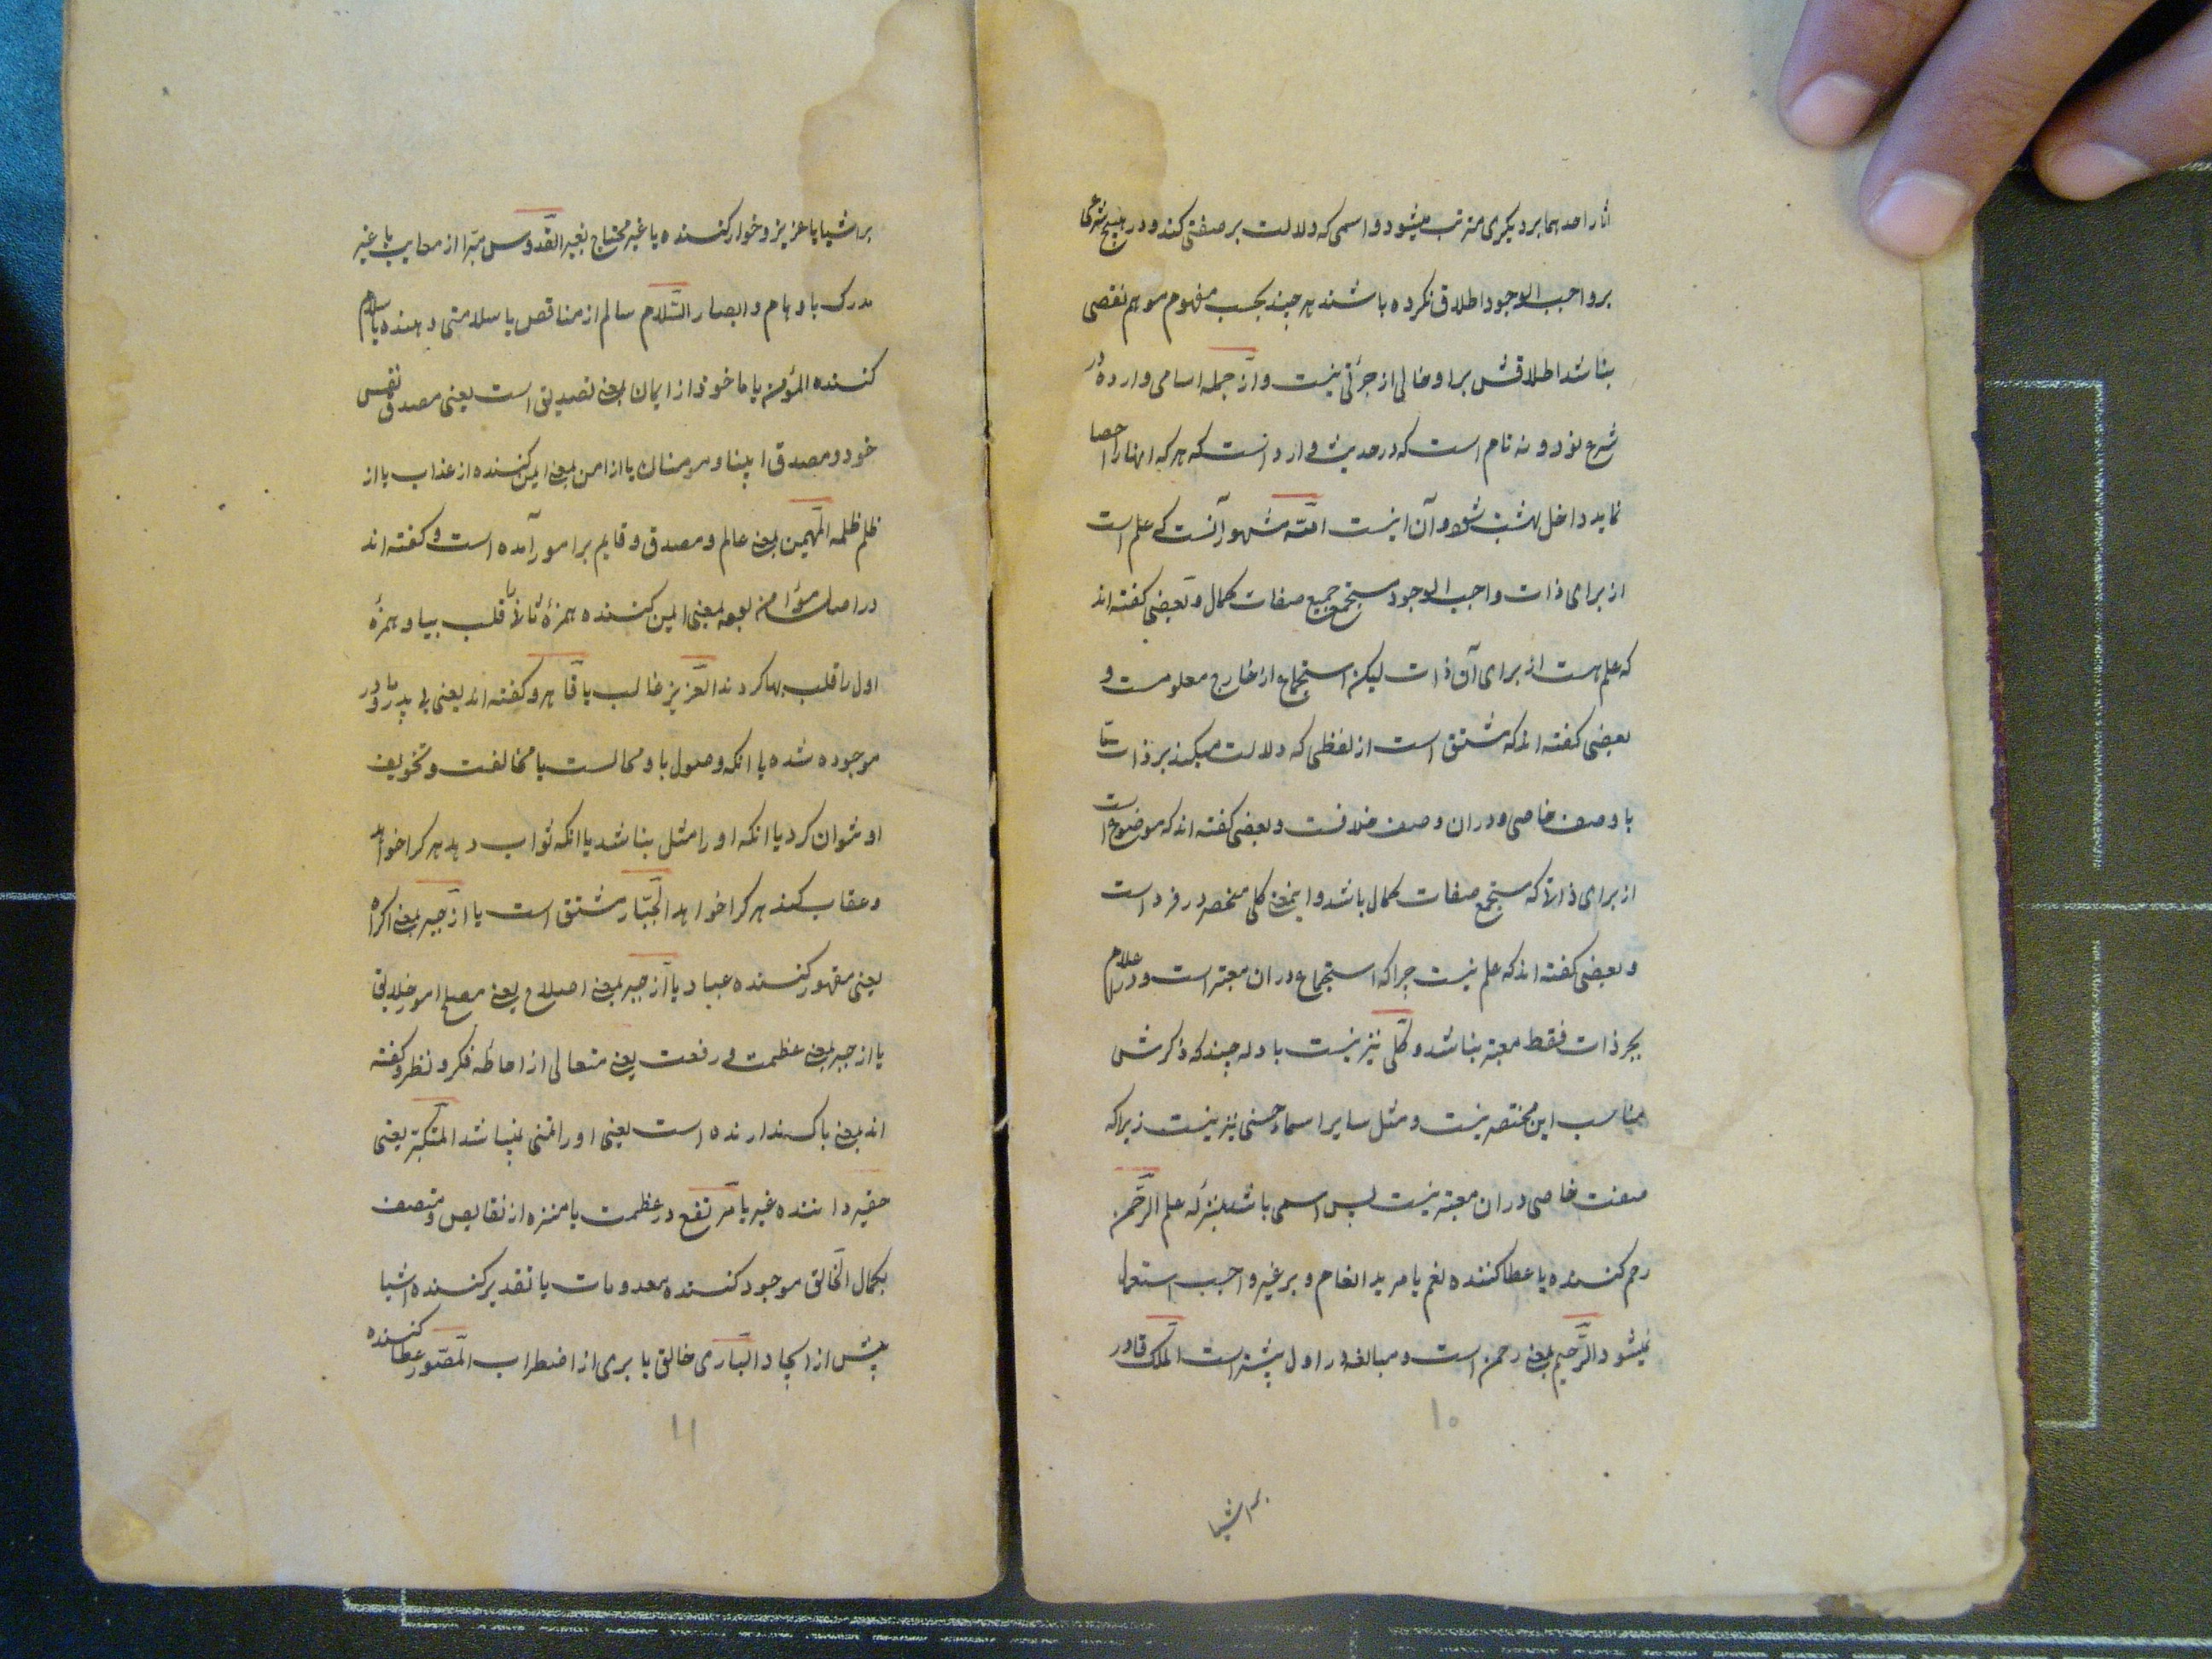 اثار احدهما بر دیکری مترتب میشود و اسمی که دلالت بر صفتی کند و در هیچ شرعی
بر واجب الوجود اطلاق نکرده باشند هر چند بحسب مفهوم موهم نقصی
نباشد اطلاقش بر او خالی از جرئتی نیست و از جمله اسامی وارده در
شرع نود و نه نام است که در حدیث وارد است که هر که انها را احصا
نماید داخل بهشت شود و آن اینست الله مشهور آنست که علم است
از برای ذات واجب الوجود مستجمع جمیع صفات کمال و بعضی کفته اند
که علم هست از برای آن ذات لیکن استجماع از خارج معلومست و
بعضی کفته اند که مشتق است از لفظی که دلالت میکند بر ذات
با وصف خاصی و در ان وصف خلافست و بعضی کفته اند که موضوع است
از برای ذاتی که مستجمع صفات کمال باشد و اینمعنی کلی منحصر در فرد است
و بعضی کفته اند که علم نیست چرا که استجماع در ان معتبر است و در اعلام
بجز ذات فقط معتبر نباشد و کلی نیز نیست بادله چند که ذکرش
مناسب این مختصر نیست و مثل سایر اسماء حسنی نیز نیست زیرا که
صفت خاصی در ان معتبر نیست پس اسمی باشد بمنزله علم الرحمن
رحم کننده یا عطا کننده نعم یا مرید انعام و بر غیر واجب استعمال
نمیشود الرحیم بمعنی رحمن است و مبالغه در اول بیشتر است الملک قادر
۱۰
بر اشیا
بر اشیا یا عزیز و خوار کننده یا غیر محتاج بغیر القدوس مبرا از معایب یا غیر
مدرک باوهام و ابصار السلام سالم از مناقص یا سلامتی دهنده یا سلام
کننده المؤمن یا ماخوذ از ایمان بمعنی تصدیق است یعنی مصدق نفس
خود و مصدق انبیا و مومنان یا از امن بمعنی ایمن کننده از عذاب یا از
ظلم ظلمه المهیمن بمعنی عالم و مصدق و قایم بر امور آمده است و کفته اند
در اصل مؤامن بوده بمعنی ایمن کننده همزهٔ ثانی را قلب بیا و همزهٔ
اول را قلب بها کردند العزیز غالب یا قاهر و کفته اند یعنی بی پدر و مادر
موجود شده یا انکه وصول باو محالست یا مخالفت و تخویف
او نتوان کرد یا انکه او را مثل نباشد یا انکه ثواب دهد هر کرا خواهد
و عقاب کند هر کرا خواهد الجبار مشتق است یا از جبر بمعنی اکراه
یعنی مقهور کننده عباد یا از جبر بمعنی اصلاح یعنی مصلح امور خلایق
یا از جبر بمعنی عظمت و رفعت یعنی متعالی از احاطه فکر و نظر و کفته
اند بمعنی باک ندارنده است یعنی او را تمنی نمیباشد المتکبر یعنی
حقیر داننده غیر یا مرتفع در عظمت یا منزه از نقایص و متصف
بکمال الخالق موجود کننده معدومات یا تقدیر کننده اشیا
پیش از ایجاد الباری خالق یا بری از اضطراب المصور عطا کننده
۱۱